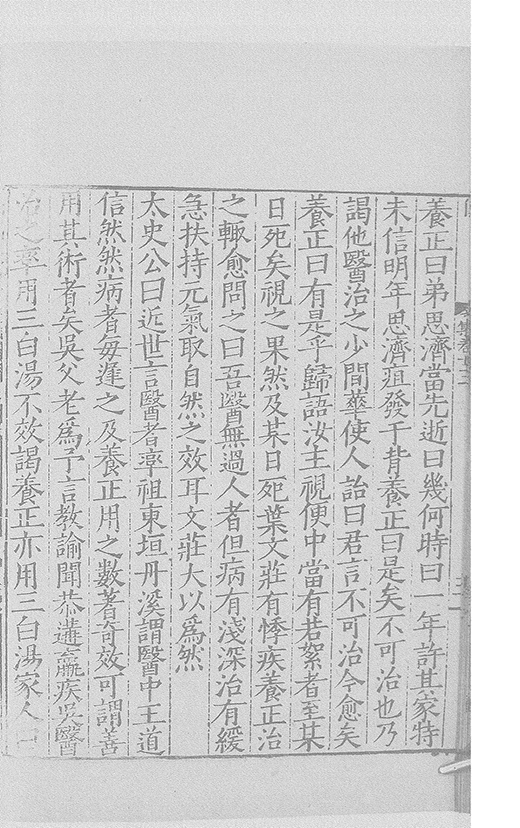 養正曰弟思濟當先逝曰幾何時曰一年許其家特
未信明年思濟疽發于背養正曰是矣不可治也乃
謁他醫治之少間華使人詒曰君言不可治今愈矣
養正曰有是乎歸語汝主視便中當有若絮者至某
日死矣視之果然及某日死葉文莊有悸疾養正治
之輒愈問之曰吾醫無過人者但病有淺深治有緩
急扶持元氣取自然之效耳文莊大以為然
太史公曰近世言醫者率祖東垣丹溪謂醫中王道
信然然病者每遲之及養正用之數著奇效可謂善
用其術者矣吳父老為予言教諭聞恭遘羸疾吳醫
治之率用三白湯不效謁養正亦用三白湯家人曰